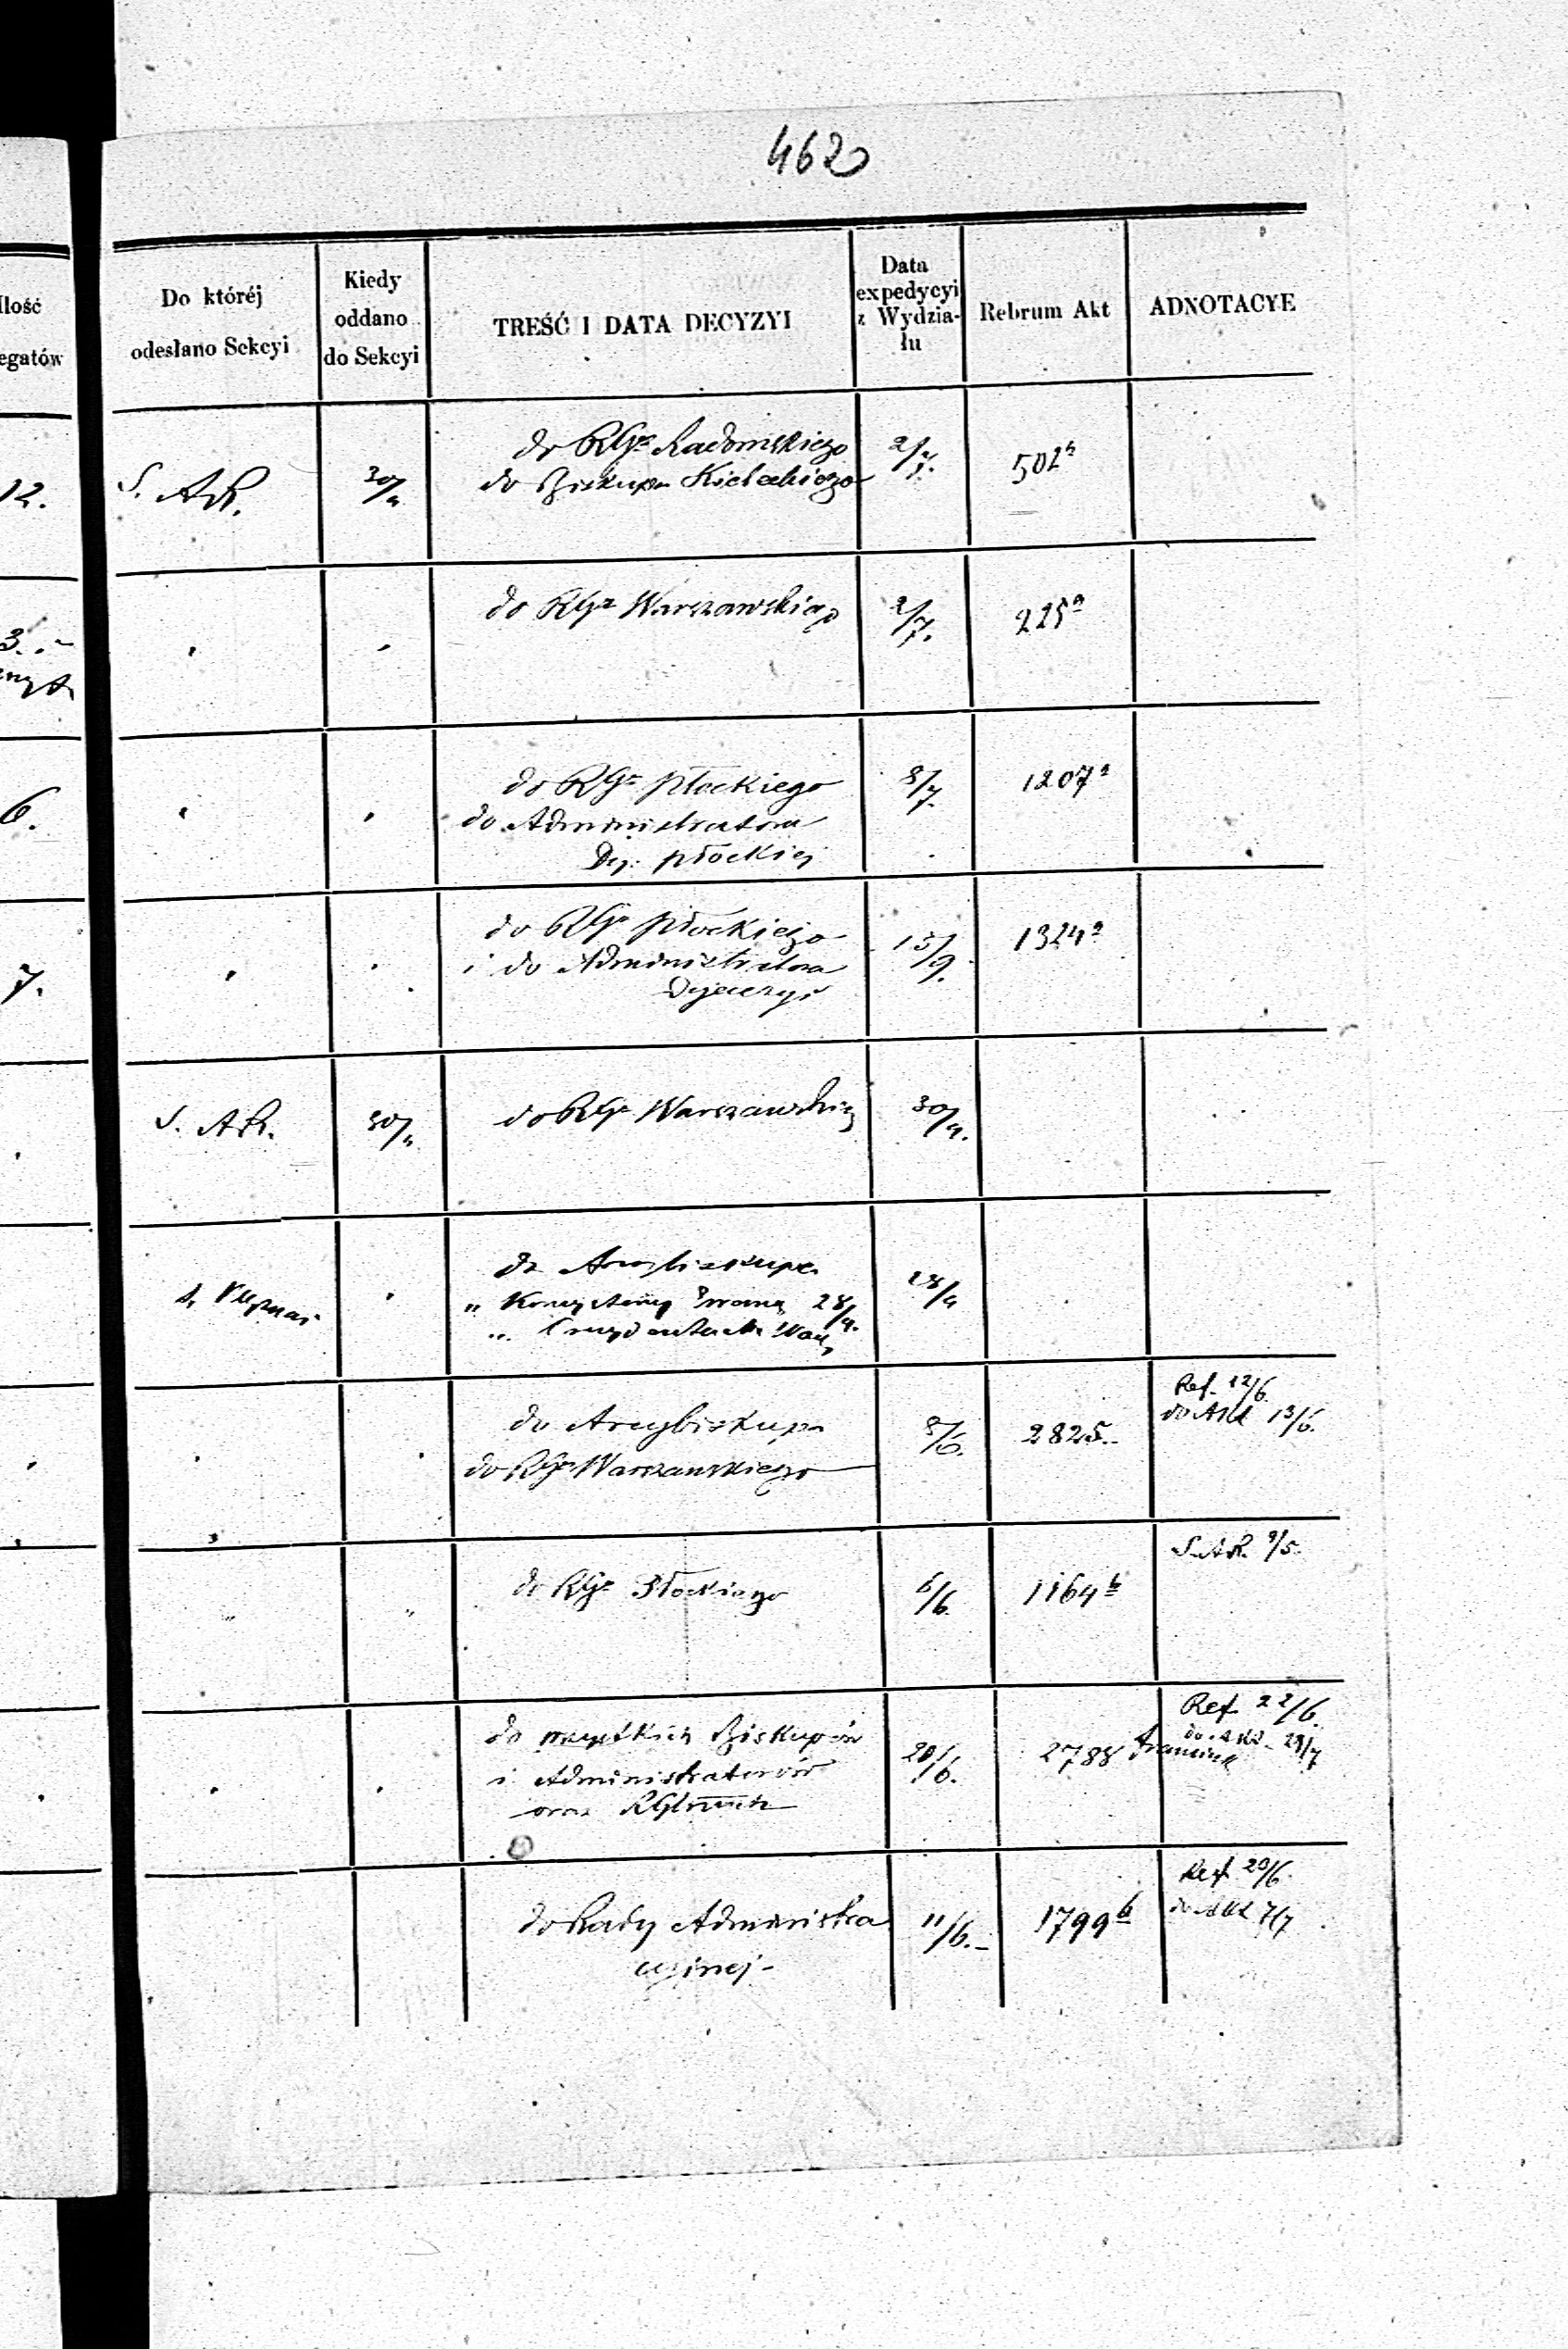 4620
Ilość
egatów
Do któréj
odesłano Sekcyi
Kiedy
oddano
do Sekcyi
TREŚĆ I DATA DECYZYI
Data
expedycyi
z Wydzia-
łu
Rebrum Akt
ADNOTACYE
12.
S. AR.
30/4
do RGr Radomskiego
do Biskupa Kieleckiego
2/7.
502a
3.
do RGr Warszawskiego
2/7.
225a
6.
do RGr Płockiego
do Administratora
Dyj. płockiej
8/7.
1207a
7.
do RGr Płockiego
i do Administratora
Dyjecezyi
15/9.
1324a
S. AR.
30/4
do RGr Warszawskieg
30/4.
do Arcybiskupa
28/4.
28/4
do Arcybiskupa
do RGr Warszawskiego
8/6.
2825.
Ref. 12/6.
do Akt 13/6.
do RGr Płockiego
6/6.
1164b
S. AR. 9/5.
do wszystkich Biskupów
i Administratorów
oraz
20/6.
2788
Ref 22/6.
do Akt 23/7
do Rady Administra
cyjnej
11/6.
1799b
Ref 20/6.
do Akt 7/7